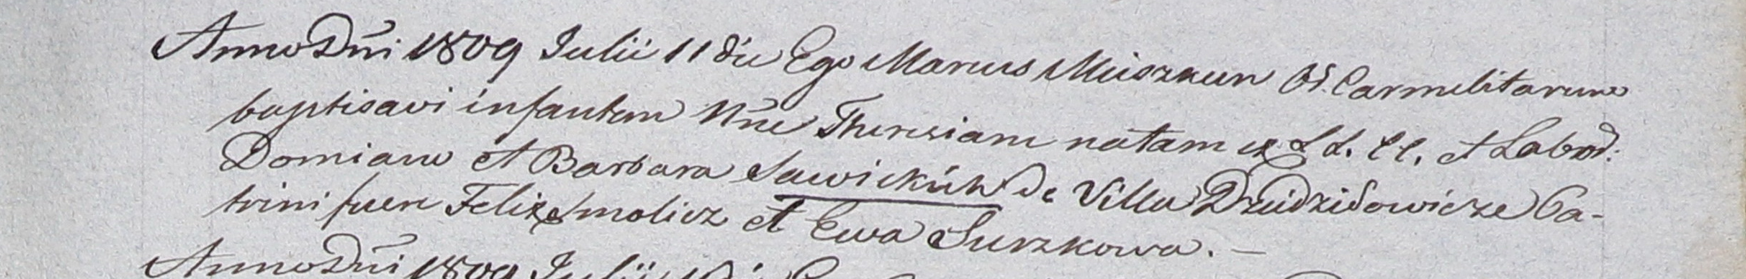 Anno Dñi 1809 Julii 11 die Ego Marcus Miiszkun Carmelitarum
baptisavi infantem Nñe Theresiam natam ex LL. CC. et Labod:
Domiano et Barbara Sawickich de Villa Dziidzidowicze Pa-
trini fuere Felix Smolicz et Ewa Surzkowa. —
Anno Dñi 1809 Julii